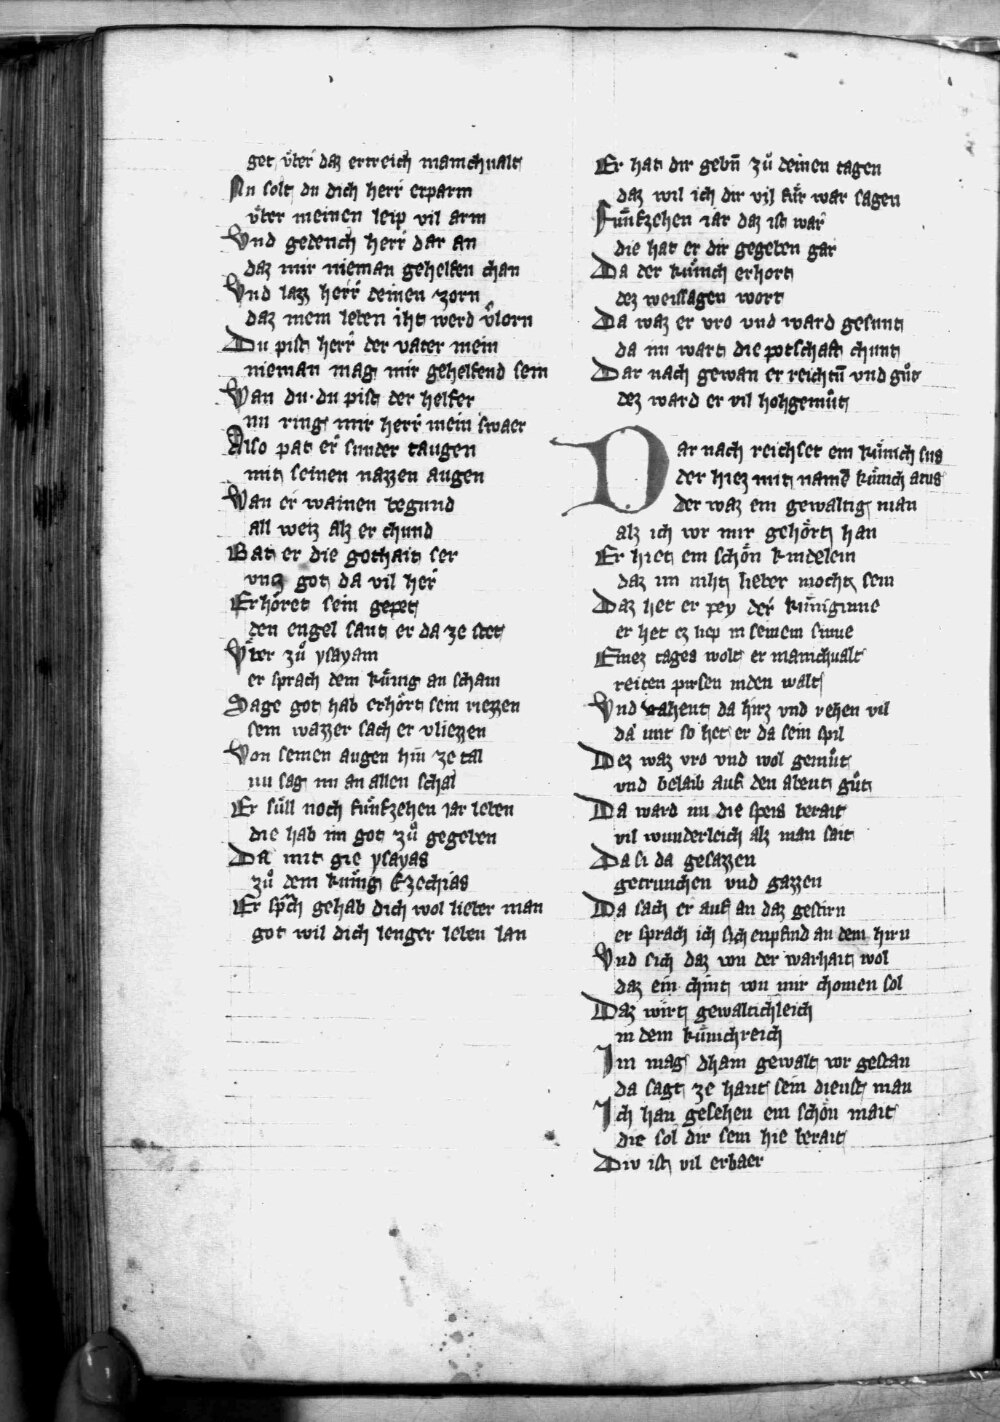 get vber daz ertreich manichualt
Nu solt du dich herr erparm
vber meinen leip vil arm
Vnd gedench herr dar an
daz mir nieman gehelfen chan
Vnd lazz herr deinen zorn
daz mein leben iht werd v̓lorn
Du pist herr der vater mein
nieman mag mir gehelfend sein
Wan du du pist der helfer
nu ring mir herr mein swaer
Also pat er sunder taugen
mit seinen nazzen augen
Wan er wainen begund
all weiz alz er chund
Bat er die gothait ser
vntz got da vil her
Erhöret sein gepet
den engel sant er da ze stet
Vber zů ysayam
er sprach dem künig an scham
Sage got hab erhört sein riezzen
sein wazzer sach er vliezzen
Von seinen augen hin ze tal
nu sag im an allen schal
Er süll noch fünfzehen jar leben
die hab im got zů gegeben
Da mit gie ysayas
zů dem künig Ezechias
Er sp̃ch gehab dich wol lieber man
got wil dich lenger leben lan
Er hat dir gebn̄ zů deinen tagen
daz wil ich dir vil für war sagen
Fünfzehen iar daz ist war
die hat er dir gegeben gar
Da der künich erhort
dez weissagen wort
Da waz er vro vnd ward gesunt
da im wart die potschaft chunt
Dar nach gewan er reichtū vnd gůt
dez ward er vil hohgemůt
Dar nach reichset ein künich sus
der hiez mit name künich atus
der waz ein gewaltig man
alz ich vor mir gehört han
Er hiet ein schön kindelein
daz im niht lieber mocht sein
Daz het er pey der küniginne
er het ez liep in seinem sinne
Einez tages wolt er manichualt
reiten pirsen inden walt
Vnd vahent da hirz vnd rehen vil
da mit so het er da sein spil
Dez waz vro vnd wol gemůt
vnd belaib auf den abent gůt
Da ward nu die speis berait
vil wunderleich alz man sait
Da si da gesazzen
getrunchen vnd gazzen
Da sach er auf an daz gestirn
er sprach ich sich enpfind an dem hirn
Vnd sich daz von der warhait wol
daz ein chint von mir chomen sol
Daz wirt gewaltichleich
in dem künichreich
Im mag dhain gewalt vor gestan
da sagt ze hant sein dienst man
Ich han gesehen ein schön mait
die sol dir sein hie berait
Div ist vil erbaer